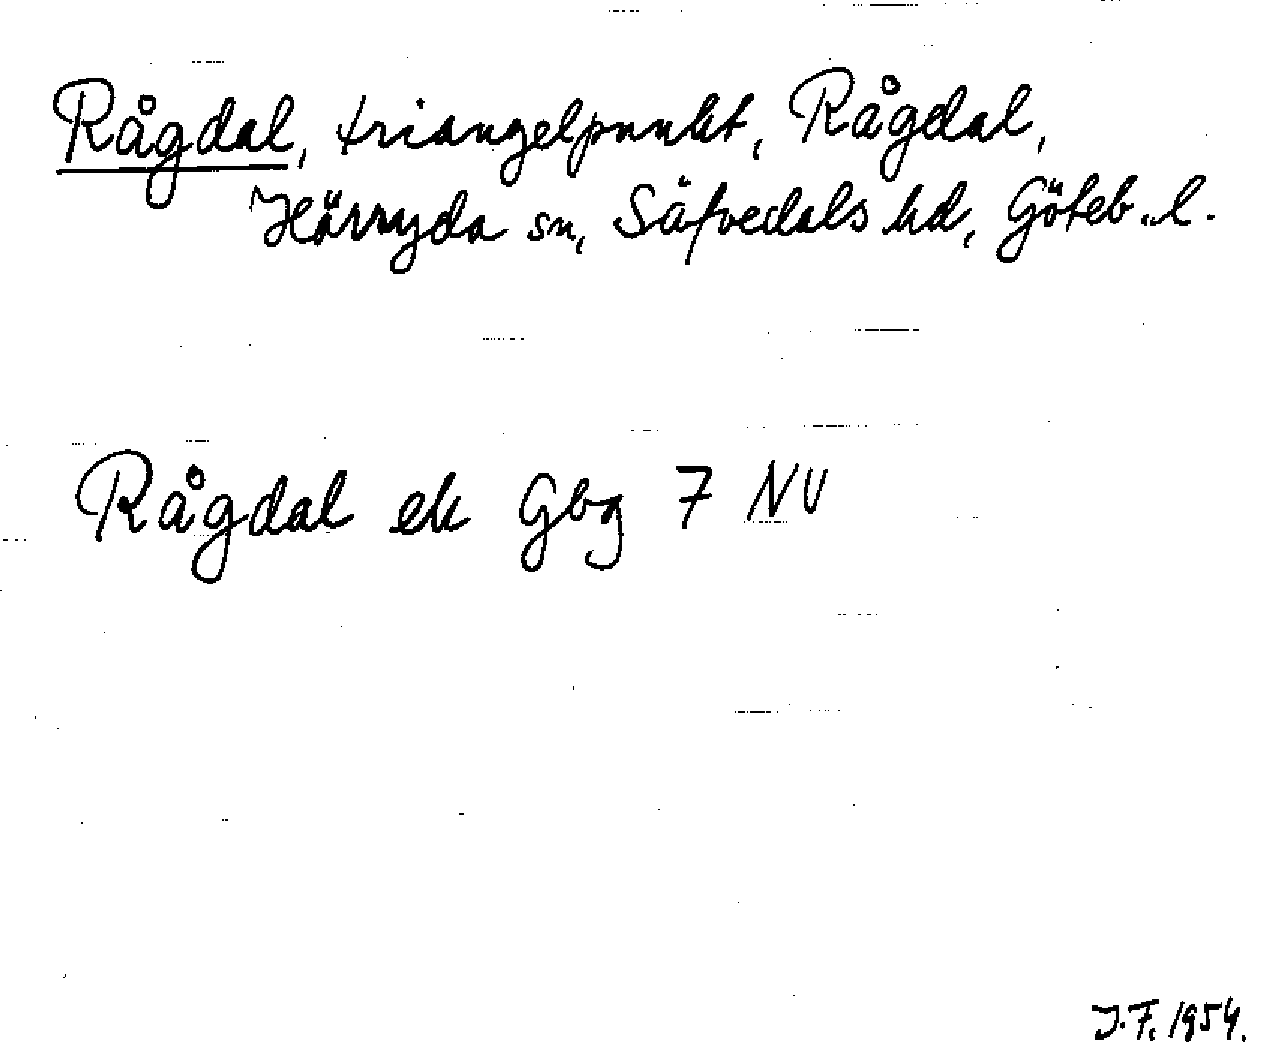 Rågdal, triangelpunkt, Rågdal,
Härryda sn, Säfvedals hd, Göteb. l.
Rågdal ek Gbg 7 NV
J.F. 1954.